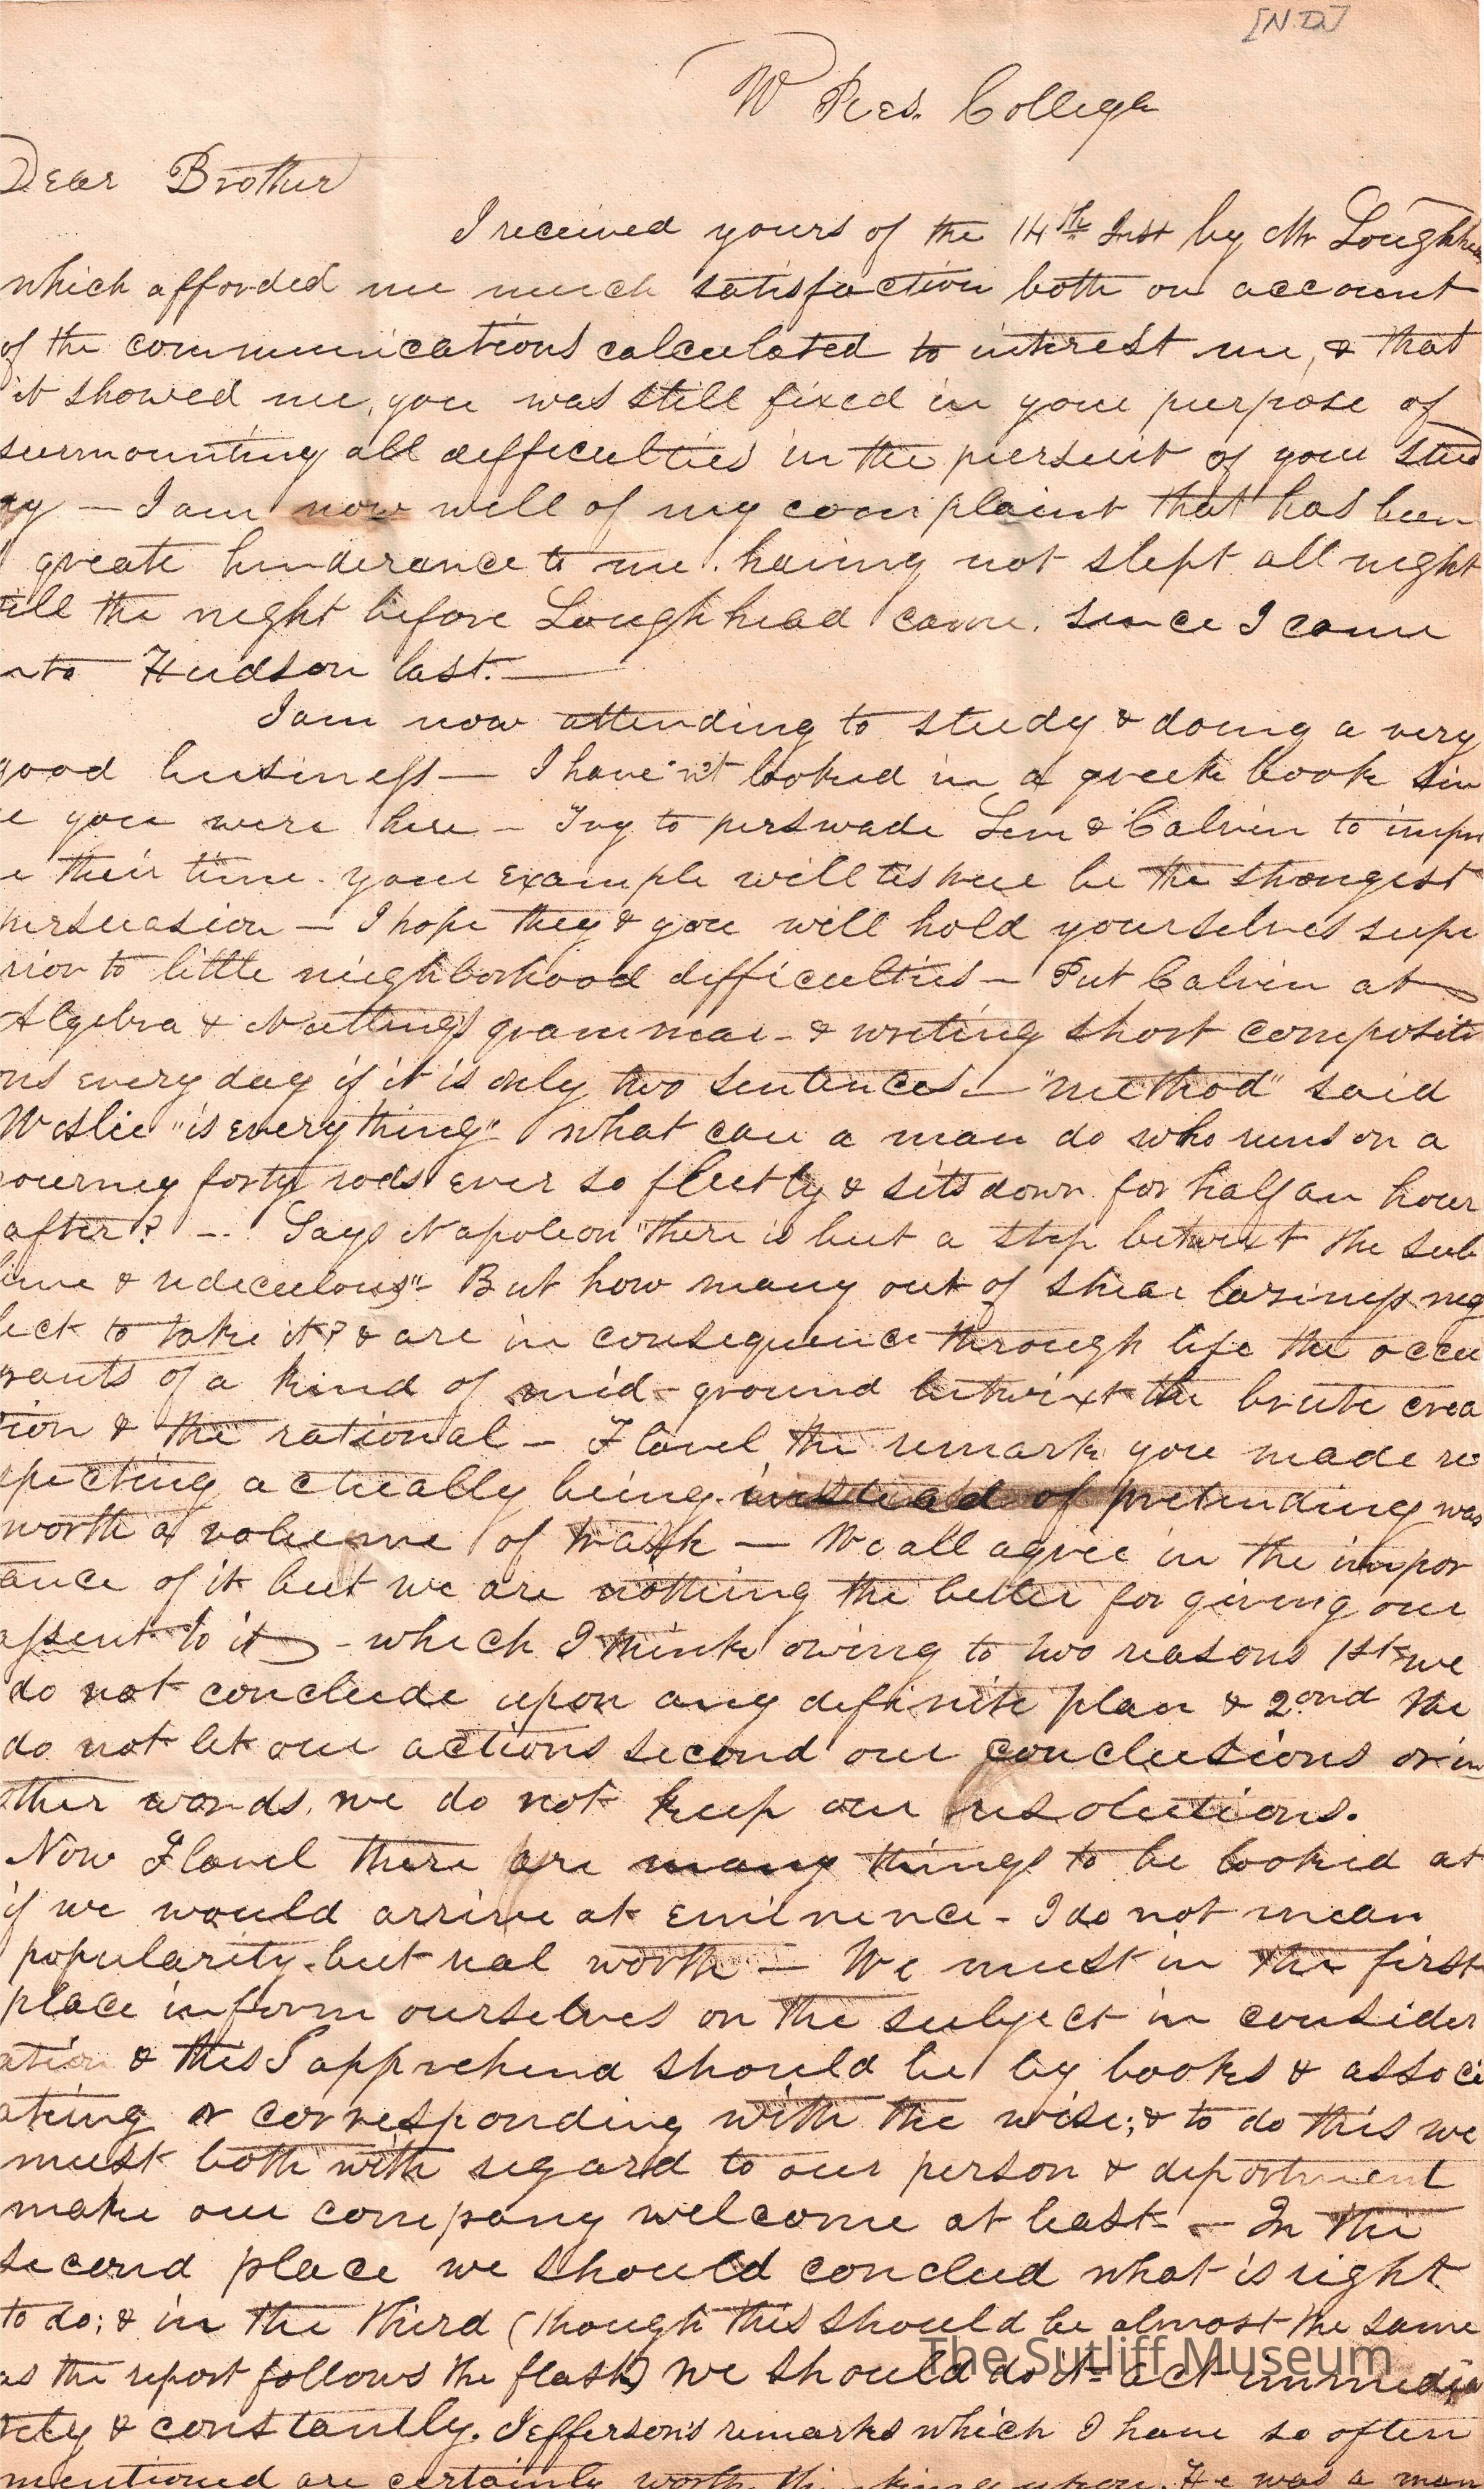 [N.D.]
W Res. College
Dear Brother
I received yours of the 14th Inst by Mr Loughhea
which afforded me much satisfaction both on account
of the communications calculated to interest me, & that
it showed me, you was still fixed in your purpose of
surmounting all difficulties in the persuit of your stud
ay — I am now well of my complaint that has been
greate hinderance to me. having not slept all night
till the night before Loughhead came. since I came
nto Hudson last. —
I am now attending to study & doing a very
good business — I have n't looked in a greek book sin
e you were here — Try to perswade Levi & Calvin to impr
e their time. your example will be the strongest
persuasion — I hope they & you will hold yourselves supe
rior to little nieghborhood difficulties — Put Calvin at
Algebra & Nutting's grammar - & writing short compositi
ons every day if it is only two sentences — "method" said
Weslie "is every thing" what can a man do who runs on a
journey forty rods ever so fleetly & sits down for half an hour
after? -- Says Napoleon "there is but a step betwixt the sub
lime & rediculous" - But how many out of shear lasiness neg
lect to take it? & are in consequence through life the occu
pants of a kind of mid-ground betwixt the brute crea
tion & the rational — Flavel the remark you made re
specting actually being. instead of pretending was
worth a volume of trash — We all agree in the impor
ance of it but we are nothing the better for giving our
assent to it — which I think owing to two reasons 1st we
do not conclude upon any definite plan & 2ond the
do not let our actions second our conclusions or in
other words, we do not keep our resolutions.
Now Flavel there are many things to be looked at
if we would arrive at eminence - I do not mean
popularity - but real worth — We must in the first
place inform ourselves on the subject in consider
ation & this I apprehend should be by books & associ
ating or corresponding with the wise; & to do this we
must both with regard to our person & deportment
make our company welcome at least — In the
second place we should conclud what is right
to do; & in the third (though this should be almost the same
as the report follows the flash) we should do it - act immedia
tely & constantly. Jefferson's remarks which I have so often
mentioned are certainly worth thinking upon. He was a man
The Sutliff Museum